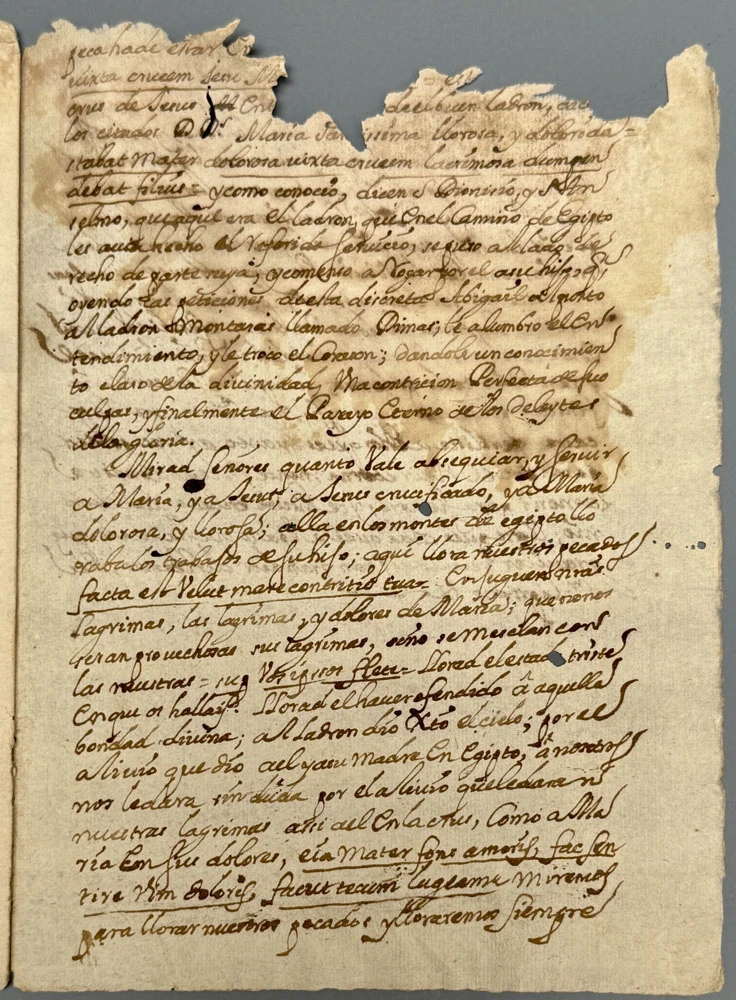 peca hade estar En
iuxta crucem Jesu M
crus de Jesus de el buen ladron,
los citados D. D.s Maria Santissima llorosa, y dolorosa=
stabat Mater dolorosa iuxta crucem lacrimosa dumpen
debat filius= y como conocio, dicen S Dionisio, y S An
selmo, que aquel era el ladron, que En el Camino de Egipto
les avia hecho el Referido servicio, se puso al lado de
recho de parte suya, y comenso a Rogar por el a su hijo, q
oyendo las peticiones de esta discreta Abigail al punto
al ladron llamado Dimas, le alumbro el En
tendimiento, y le troco el Corason; dandole un conocimien
to claro de la divinidad, Vna contricion Perfecta de sus
culpas, y finalmente el Parayso Eterno de los deleytes
de la gloria.
Mirad Señores quanto Vale obsequiar, y servir
a Maria, y a Jesus, a Jesus crucificado, y a Maria
dolorosa, y llorosa; alla en los montes de egipto llo
raba los trabajos de su hijo; aqui llora nuestros pecados
facta est Velut mare contritio tua= Enjuguen nras
lagrimas, las lagrimas, y dolores de Maria; que no nos
seran provechosas sus lagrimas, sino se mesclan con
las nuestras= sup Vos ipsos flete= llorad el estado triste
En que os hallays. Llorad el haver ofendido a aquella
bondad divina; al ladron dio Xto el cielo; por el
alivio que dio a el y a su Madre En Egipto, a nosotros
nos le dara sin duda por el alivio que le daran
nuestras lagrimas assi a el En la crus, Como a Ma
ria En sus dolores, eia Mater fons amoris, fac sen
tire Vim doloris, fac ut tecum lugeam= miremos
para llorar nuestros pecados y lloraremos siempre